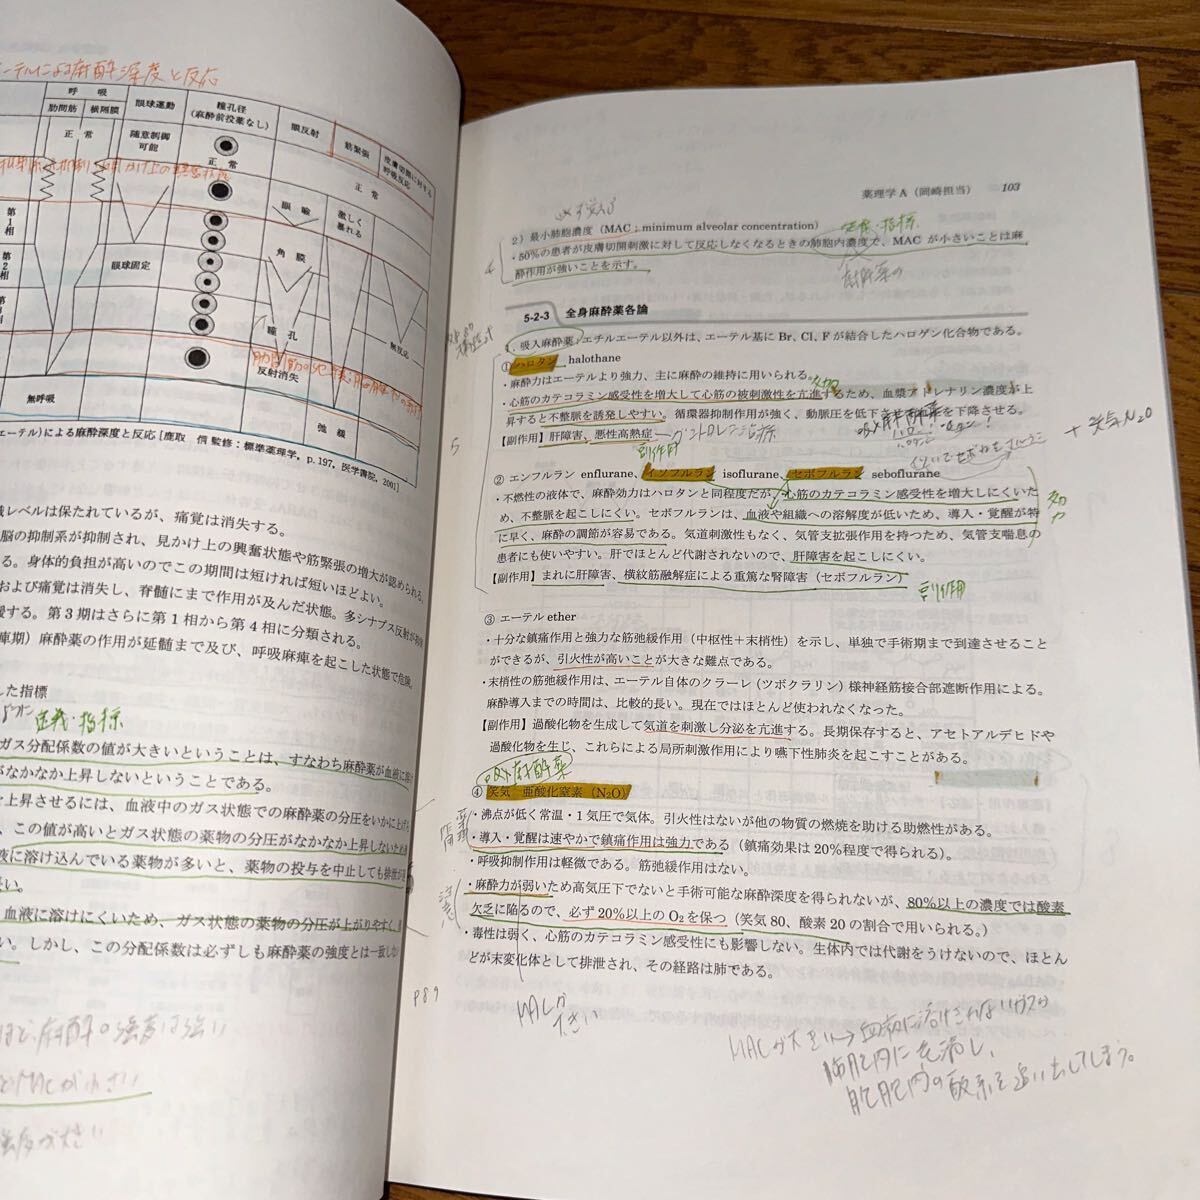 ーテルによる麻酔深度と反応
呼吸
肋間筋
横隔膜
眼球運動
瞳孔径
(麻酔前投薬なし)
眼反射
筋緊張
皮膚切開に対する
呼吸反応
正常
随意制御
可能
正常
正常
第1相
第2相
眼瞼
激しく
暴れる
角膜
眼球固定
瞳孔
無反応
反射消失
無呼吸
弛緩
エーテル)による麻酔深度と反応 [鹿取 信 監修:標準薬理学, p.197, 医学書院, 2001]
識レベルは保たれているが、痛覚は消失する。
脳の抑制系が抑制され、見かけ上の興奮状態や筋緊張の増大が認められる。
る。身体的負担が高いのでこの期間は短ければ短いほどよい。
および痛覚は消失し、脊髄にまで作用が及んだ状態。多シナプス反射が
する。第3期はさらに第1相から第4相に分類される。
期)麻酔薬の作用が延髄まで及び、呼吸麻痺を起こした状態で危険。
した指標
定義・指標
ガス分配係数の値が大きいということは、すなわち麻酔薬が血液に
がなかなか上昇しないということである。
を上昇させるには、血液中のガス状態での麻酔薬の分圧をいかに上げ
、この値が高いとガス状態の薬物の分圧がなかなか上昇しないため
液に溶け込んでいる薬物が多いと、薬物の投与を中止しても排
い。
血液に溶けにくいため、ガス状態の薬物の分圧が上がりやすく、
い。しかし、この分配係数は必ずしも麻酔薬の強度とは一致し
ほど、麻酔の強度は強い
とMACが小さい
強度が大きい
薬理学A(岡崎担当) 103
必ず覚える
2)最小肺胞濃度(MAC;minimum alveolar concentration)
定義・指標
・50%の患者が皮膚切開刺激に対して反応しなくなるときの肺胞内濃度で、MAC が小さいことは麻
酔作用が強いことを示す。
麻酔薬の
5-2-3 全身麻酔薬各論
1. 吸入麻酔薬:エチルエーテル以外は、エーテル基に Br, Cl, F が結合したハロゲン化合物である。
①ハロタン halothane
・麻酔力はエーテルより強力、主に麻酔の維持に用いられる。
効力
・心筋のカテコラミン感受性を増大して心筋の被刺激性を亢進するため、血漿アドレナリン濃度が上
昇すると不整脈を誘発しやすい。循環器抑制作用が強く、動脈圧を低下
を下降させる。
【副作用】肝障害、悪性高熱症
ダントロレン治療
副作用
+ 笑気N₂O
5
② エンフルラン enflurane、イソフルラン isoflurane、セボフルラン seboflurane
・不燃性の液体で、麻酔効力はハロタンと同程度だが、心筋のカテコラミン感受性を増大しにくいた
め、不整脈を起こしにくい。セボフルランは、血液や組織への溶解度が低いため、導入・覚醒が特
に早く、麻酔の調節が容易である。気道刺激性もなく、気管支拡張作用を持つため、気管支喘息の
患者にも使いやすい。肝でほとんど代謝されないので、肝障害を起こしにくい。
効力
【副作用】まれに肝障害、横紋筋融解症による重篤な腎障害(セボフルラン)
副作用
③ エーテル ether
・十分な鎮痛作用と強力な筋弛緩作用(中枢性+末梢性)を示し、単独で手術期まで到達させること
ができるが、引火性が高いことが大きな難点である。
・末梢性の筋弛緩作用は、エーテル自体のクラーレ(ツボクラリン)様神経筋接合部遮断作用による。
麻酔導入までの時間は、比較的長い。現在ではほとんど使われなくなった。
【副作用】過酸化物を生成して気道を刺激し分泌を亢進する。長期保存すると、アセトアルデヒドや
過酸化物を生じ、これらによる局所刺激作用により嚥下性肺炎を起こすことがある。
吸入麻酔薬
④ 笑気 亜酸化窒素(N₂O)
・沸点が低く常温・1気圧で気体。引火性はないが他の物質の燃焼を助ける助燃性がある。
・導入・覚醒は速やかで鎮痛作用は強力である(鎮痛効果は20%程度で得られる)。
・呼吸抑制作用は軽微である。筋弛緩作用はない。
・麻酔力が弱いため高気圧下でないと手術可能な麻酔深度を得られないが、80%以上の濃度では酸素
欠乏に陥るので、必ず20%以上の O₂ を保つ(笑気 80、酸素 20 の割合で用いられる。)
・毒性は弱く、心筋のカテコラミン感受性にも影響しない。生体内では代謝をうけないので、ほとん
どが未変化体として排泄され、その経路は肺である。
P89
MACが
大きい
MACが大きい→血液に溶けきれないガスが
肺胞内に充満し、
肺胞内の酸素を追い出してしまう。